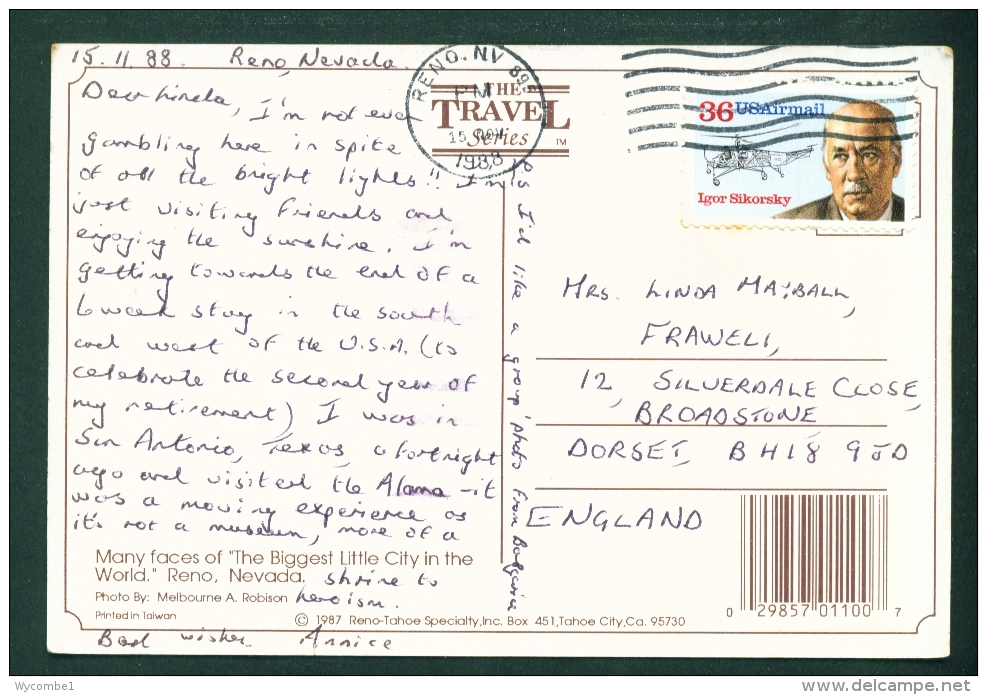 15.11.88. Reno, Nevada.
Dear Linda, I'm not even
gambling here in spite
of all the bright lights!! I'm
just visiting friends and
enjoying the sunshine. I'm
getting towards the end of a
6 week stay in the south
and west of the U.S.A. (to
celebrate the second year of
my retirement) I was in
San Antonio, Texas, a fortnight
ago and visited the Alamo - it
was a moving experience as
it's not a museum, more of a
shrine to
heroism.
Best wishes Annice
P.S. I'd like a group photo from Bulgaria
Many faces of "The Biggest Little City in the
World." Reno, Nevada.
Photo By: Melbourne A. Robison
Printed in Taiwan
© 1987 Reno-Tahoe Specialty, Inc. Box 451, Tahoe City, Ca. 95730
THE
TRAVEL
Series
TM
RENO. NV 895
PM
15 NOV
1988
36 USAirmail
Igor Sikorsky
MRS. LINDA MAYBALL,
FRAWELI,
12, SILVERDALE CLOSE,
BROADSTONE,
DORSET, BH18 9JD
ENGLAND
0 29857 01100 7
Wycombe1
www.delcampe.net